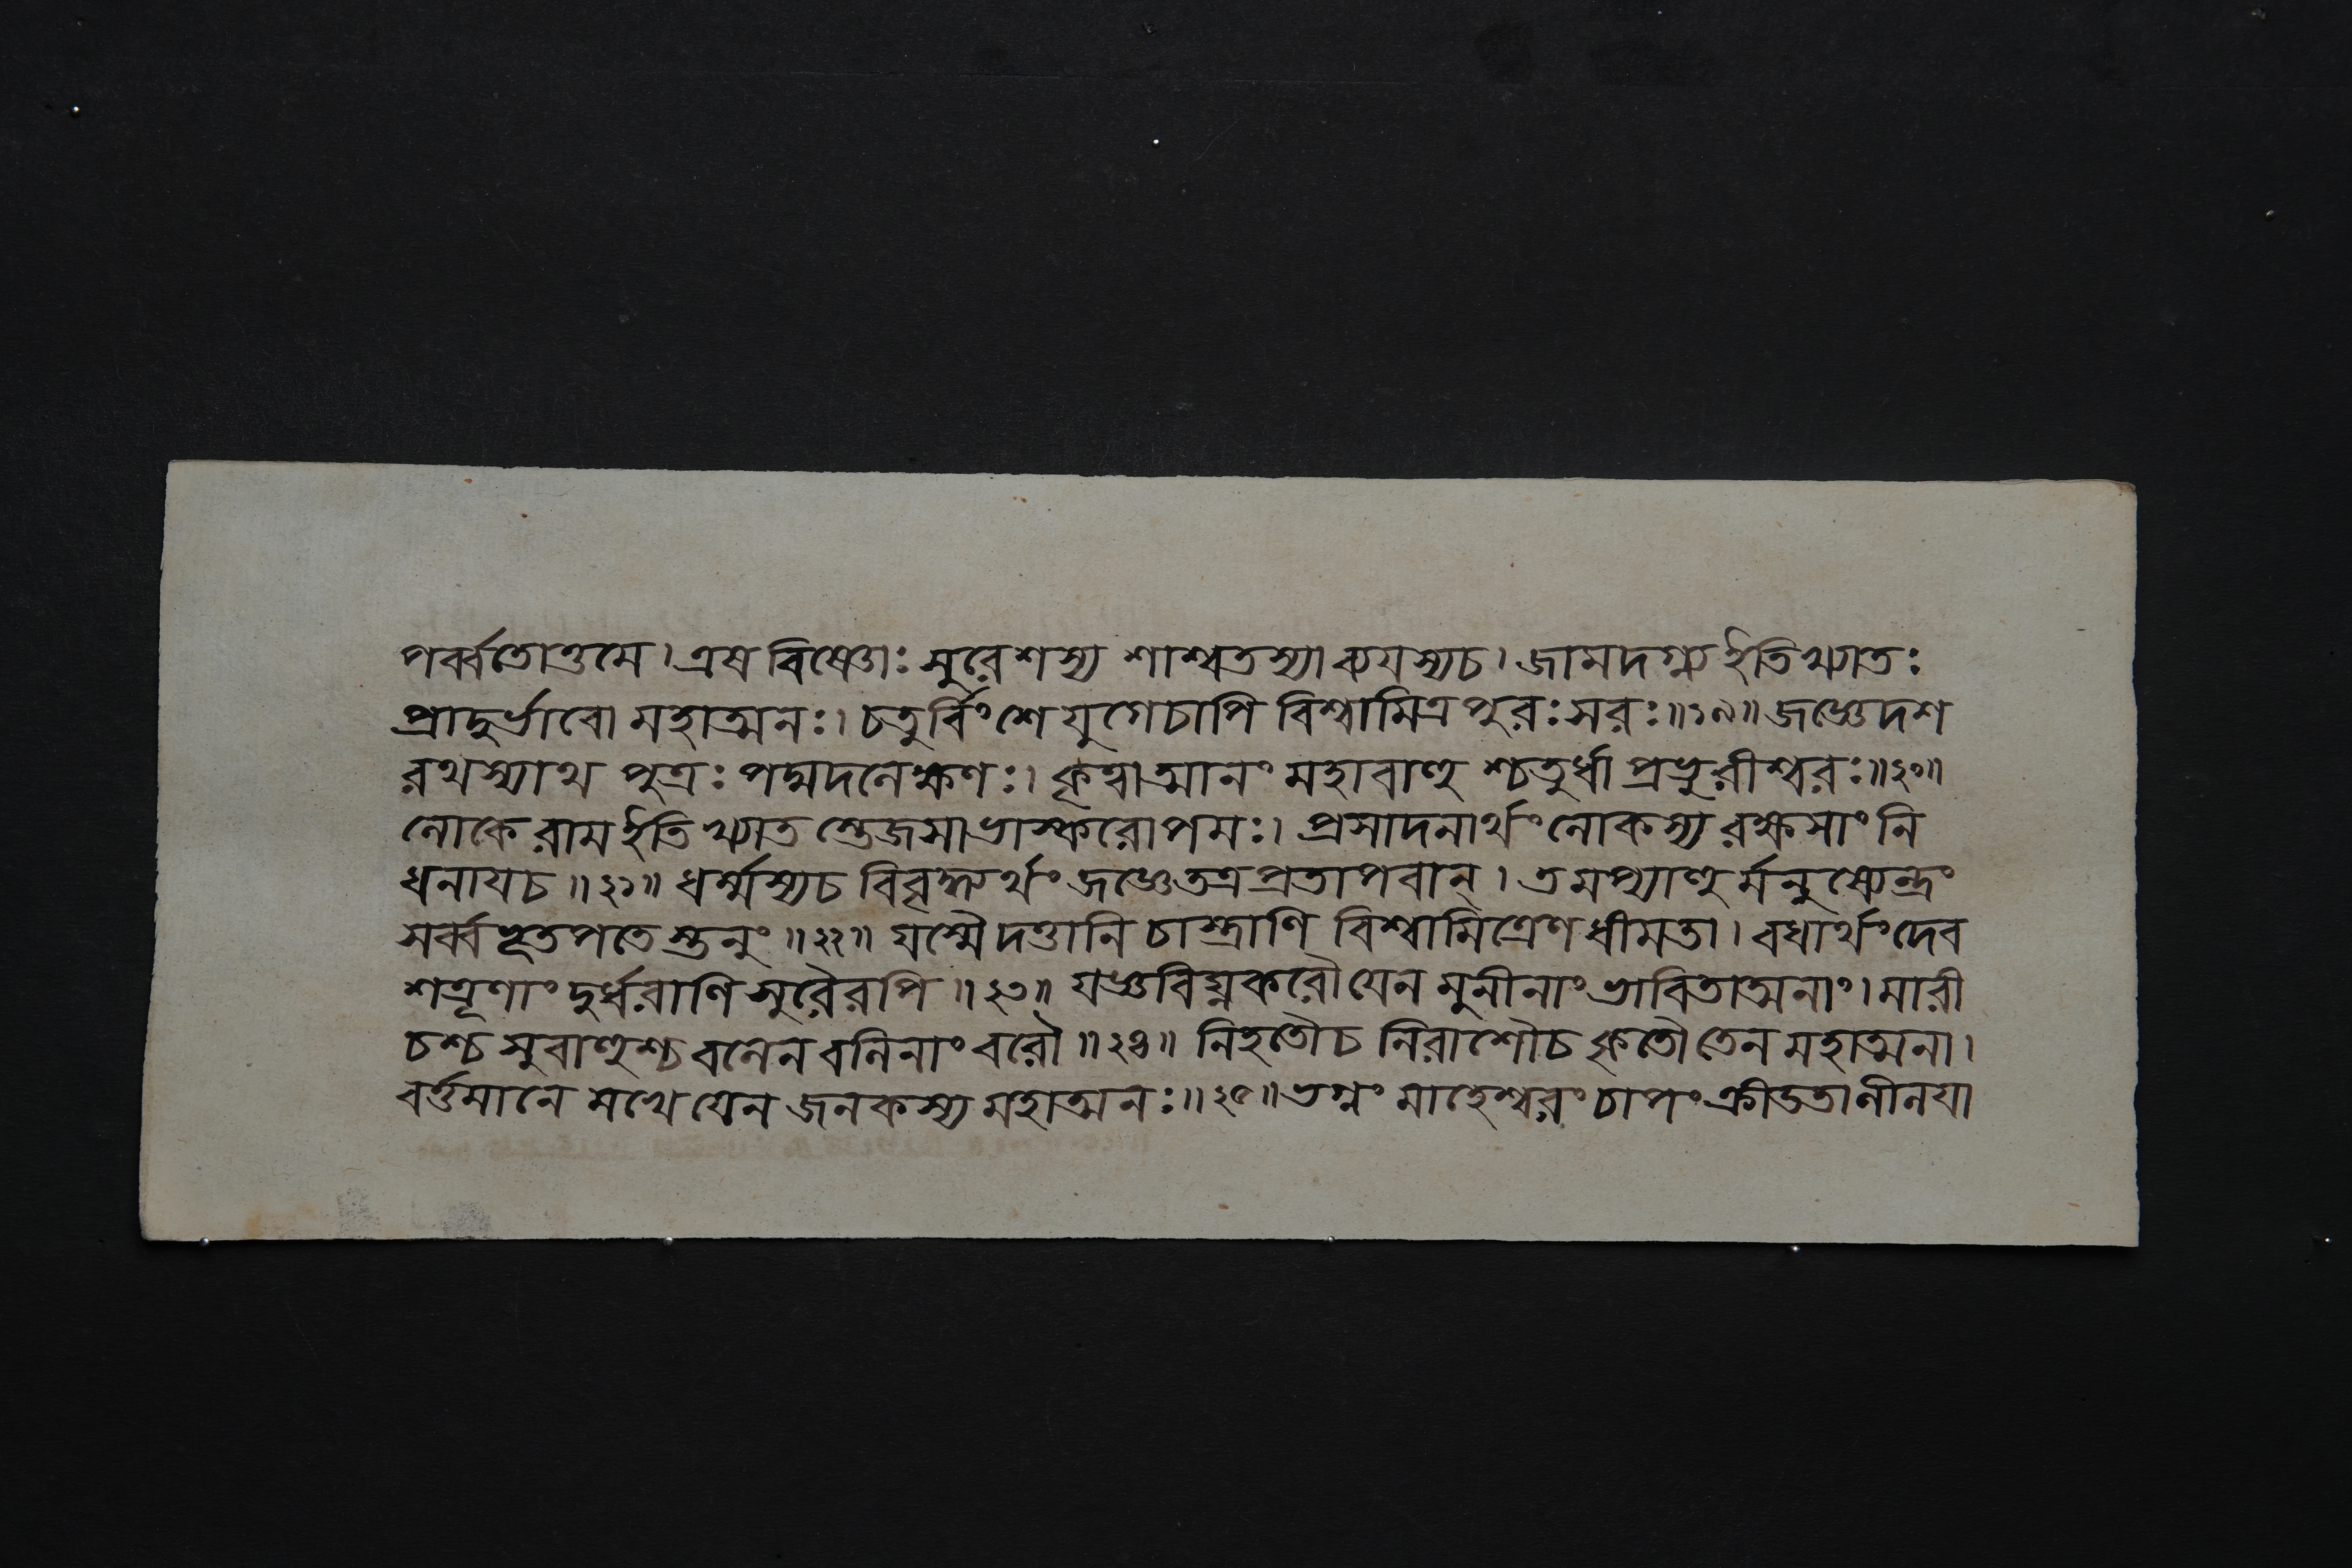 পর্ব্বতোত্তমে। এষ বিষ্ণোঃ সুরেশস্য শাশ্বতস্যাব্যযস্যচ। জামদগ্ন্য ইতিখ্যাতঃ
প্রাদুর্ভাবো মহাত্মনঃ। চতুর্বিংশে যুগেচাপি বিশ্বামিত্র পুরঃসরঃ॥১৯॥ জজ্ঞেদশ
রথস্যাথ পুত্রঃ পদ্মদলেক্ষণঃ। কৃত্বাত্মানং মহাবাহু শ্চতুর্ধা প্রভুরীশ্বরঃ॥২০॥
লোকে রাম ইতি খ্যাত স্তেজসা ভাস্করোপমঃ। প্রসাদনার্থং লোকস্য রক্ষসাং নি
ধনাযচ॥২১॥ ধর্ম্মস্যচ বিবৃদ্ধ্যর্থং জজ্ঞেতত্রপ্রতাপবান্। তমপ্যাহু র্মনুষ্যেন্দ্রং
সর্ব্বভূতপতে স্তনুং॥২২॥ যস্মৈ দত্তানি চাস্ত্রাণি বিশ্বামিত্রেণ ধীমতা। বধার্থং দেব
শত্রূণাং দুর্ধরাণি সুরৈরপি॥২৩॥ যজ্ঞবিঘ্নকরৌ যেন মুনীনাং ভাবিতাত্মনাং। মারী
চশ্চ সুবাহুশ্চ বলেন বলিনাং বরৌ॥২৪॥ নিহতৌচ নিরাশৌচ কৃতৌ তেন মহাত্মনা।
বর্ত্তমানে মখে যেন জনকস্য মহাত্মনঃ॥২৫॥ ভগ্নং মাহেশ্বরং চাপং ক্রীডতা লীলযা